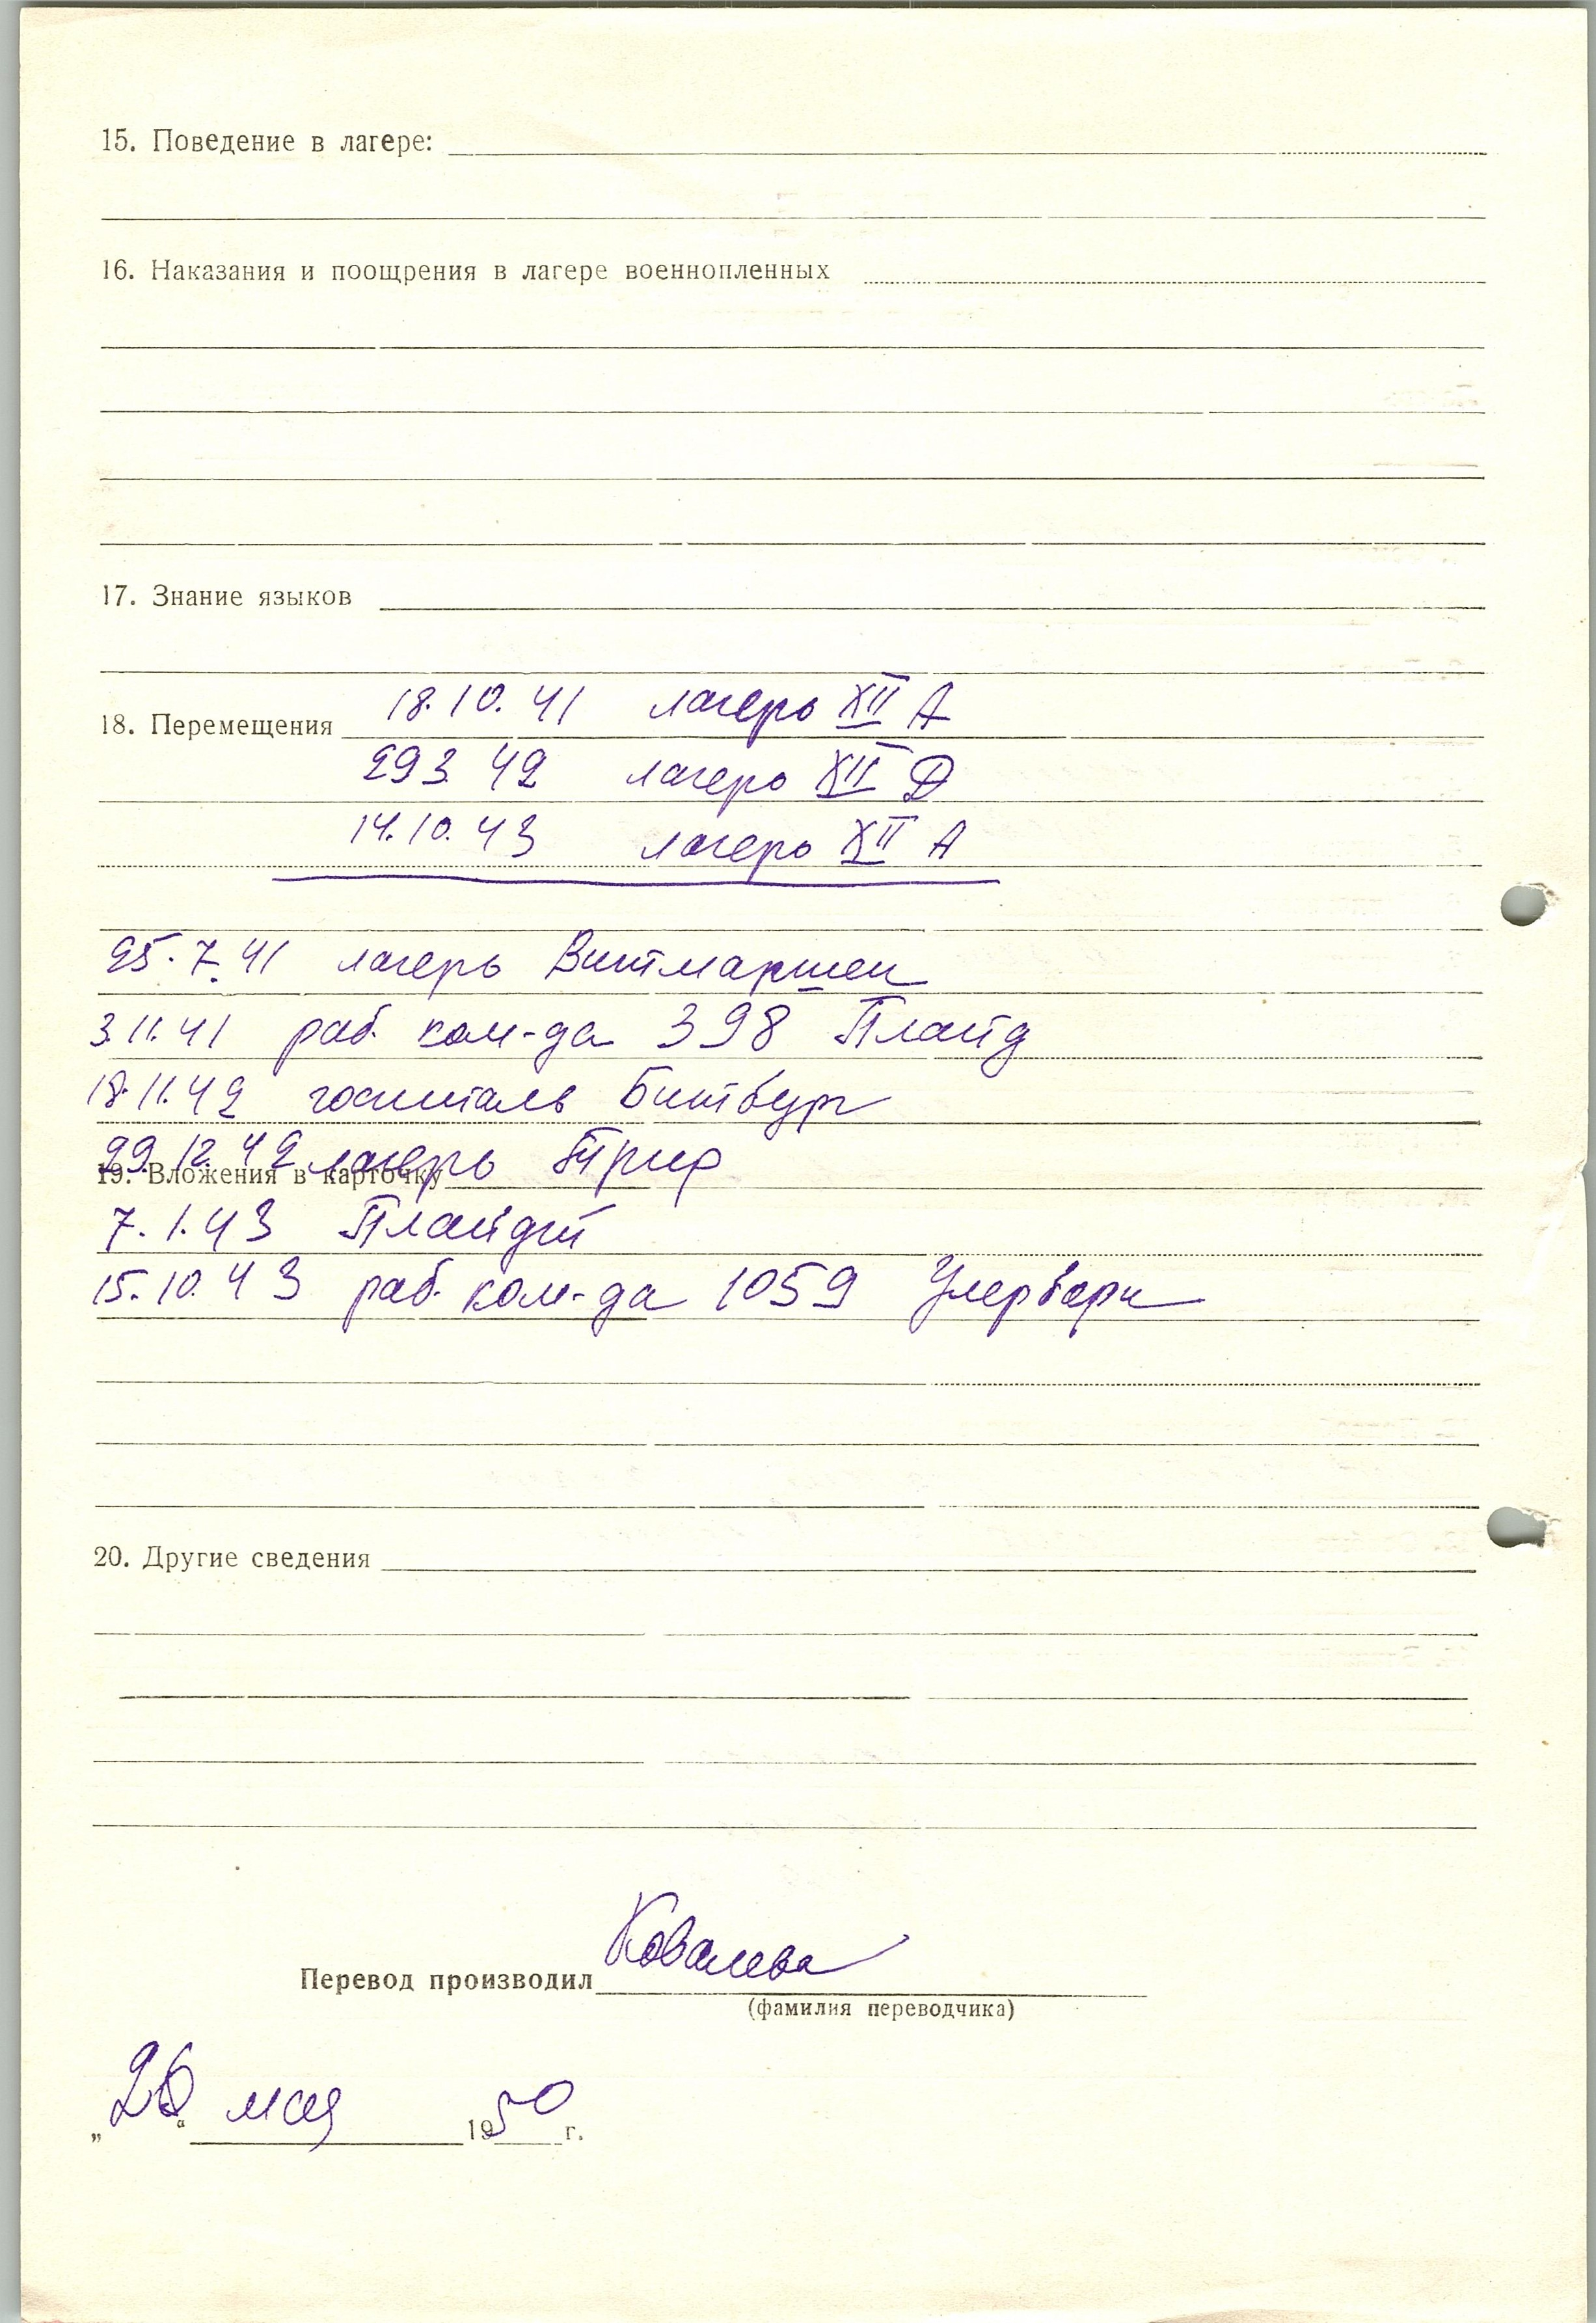 15. Поведение в лагере:
16. Наказания и поощрения в лагере военнопленных
17. Знание языков
18. Перемещения 18.10.41 лагерь XII А
29.3.42 лагерь XII Д
14.10.43 лагерь XII А
25.7.41 лагерь Витмаршен
3.11.41 раб. ком-да 398 Плайд
18.11.42 госпиталь Битбург
29.12.42 лагерь Трир
19. Вложения в карточку
7.1.43 Плайдт
15.10.43 раб. ком-да 1059
20. Другие сведения
Перевод производил Ковалева
(фамилия переводчика)
„26“ мая 1950 г.